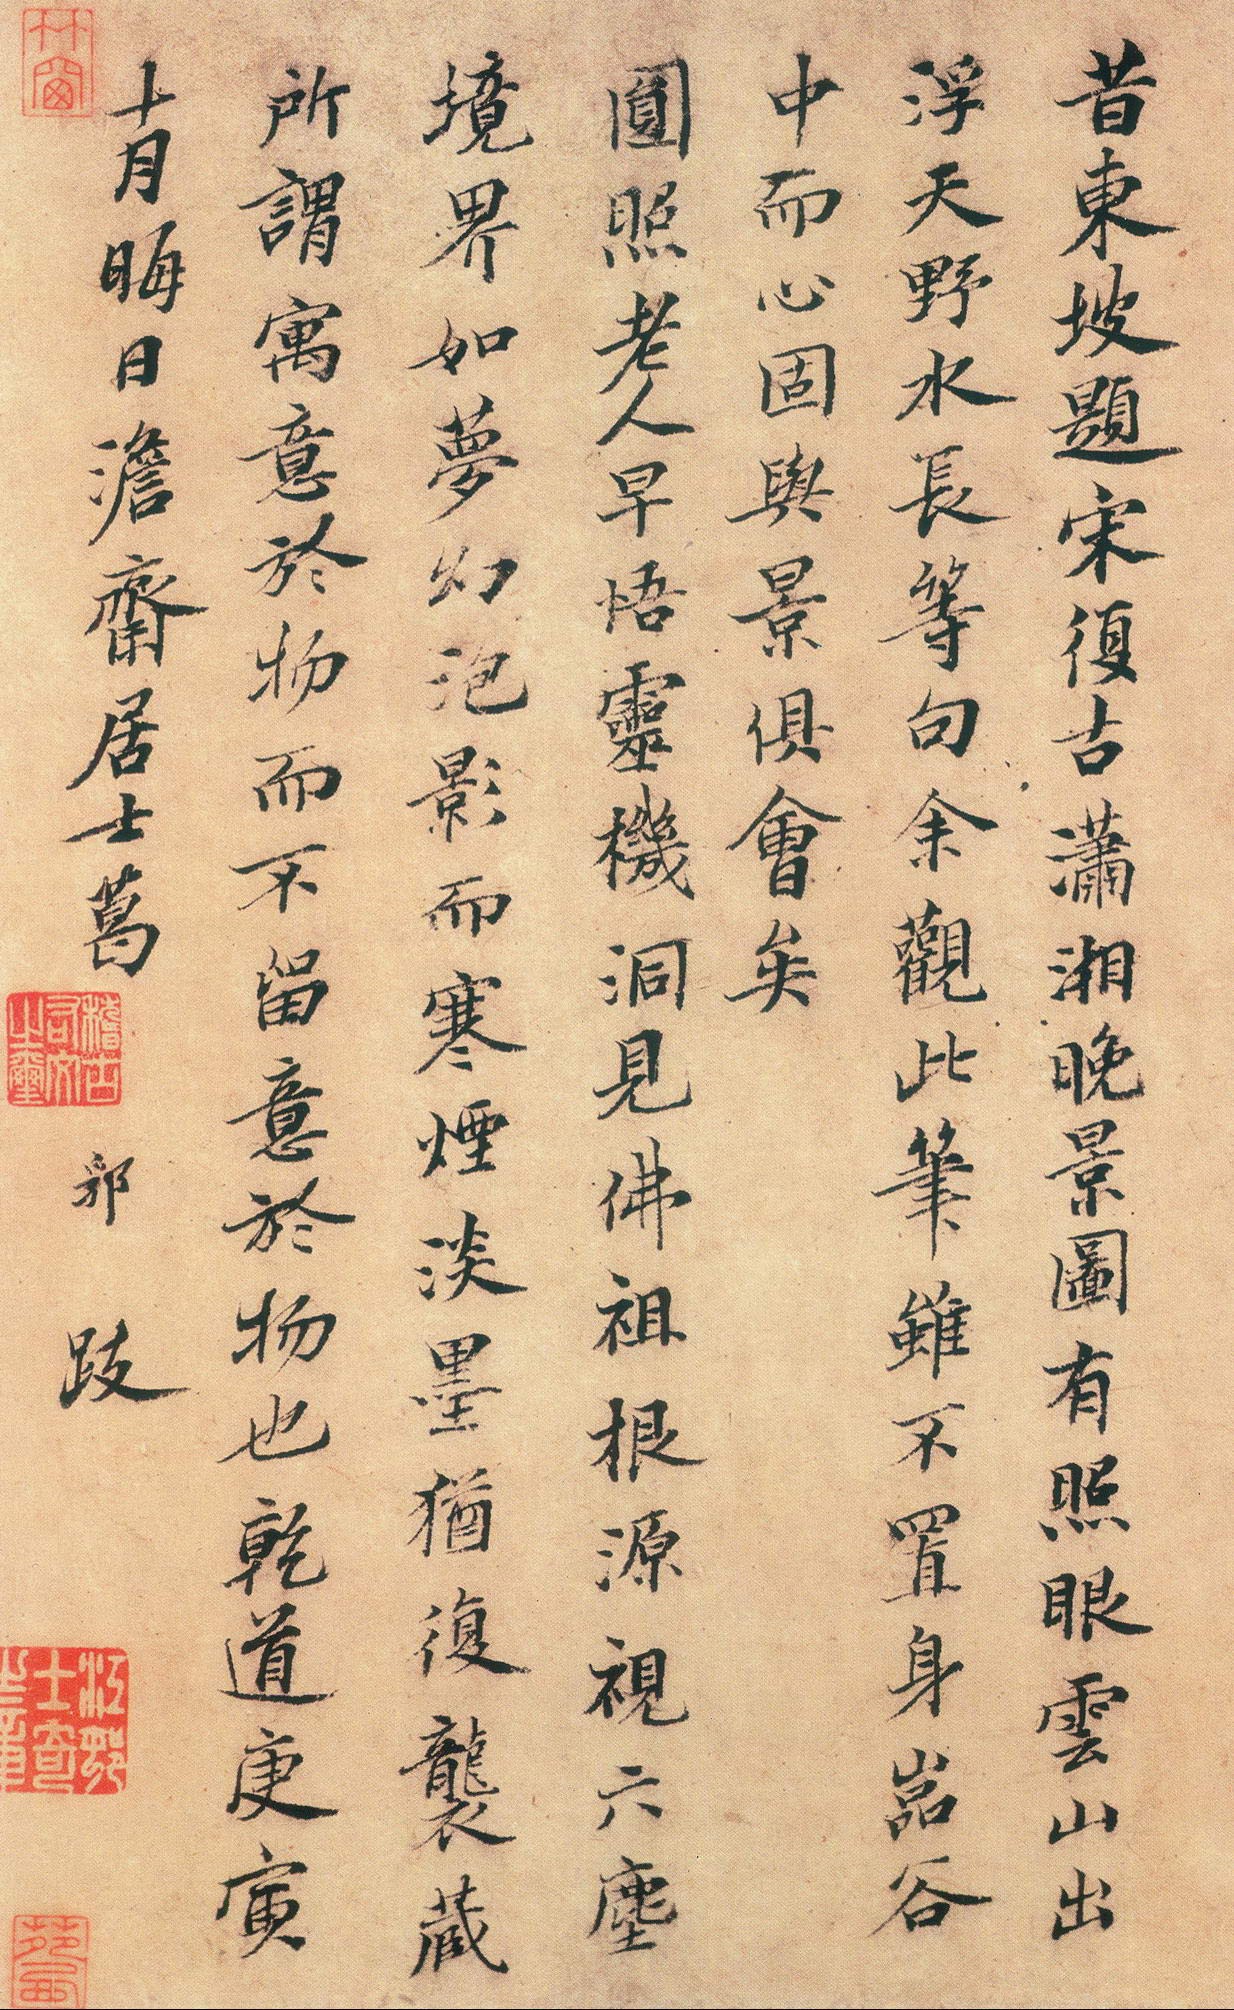 昔東坡題宋復古瀟湘晚景圖有照眼雲山出
浮天野水長等句余觀此筆雖不置身嵓谷
中而心固與景俱會矣
圓照老人早悟靈機洞見佛祖根源視六塵
境界如夢幻泡影而寒煙淡墨猶復襲藏
所謂寓意於物而不留意於物也乾道庚寅
十月晦日澹齋居士葛郛跋
稽古
右文
之璽